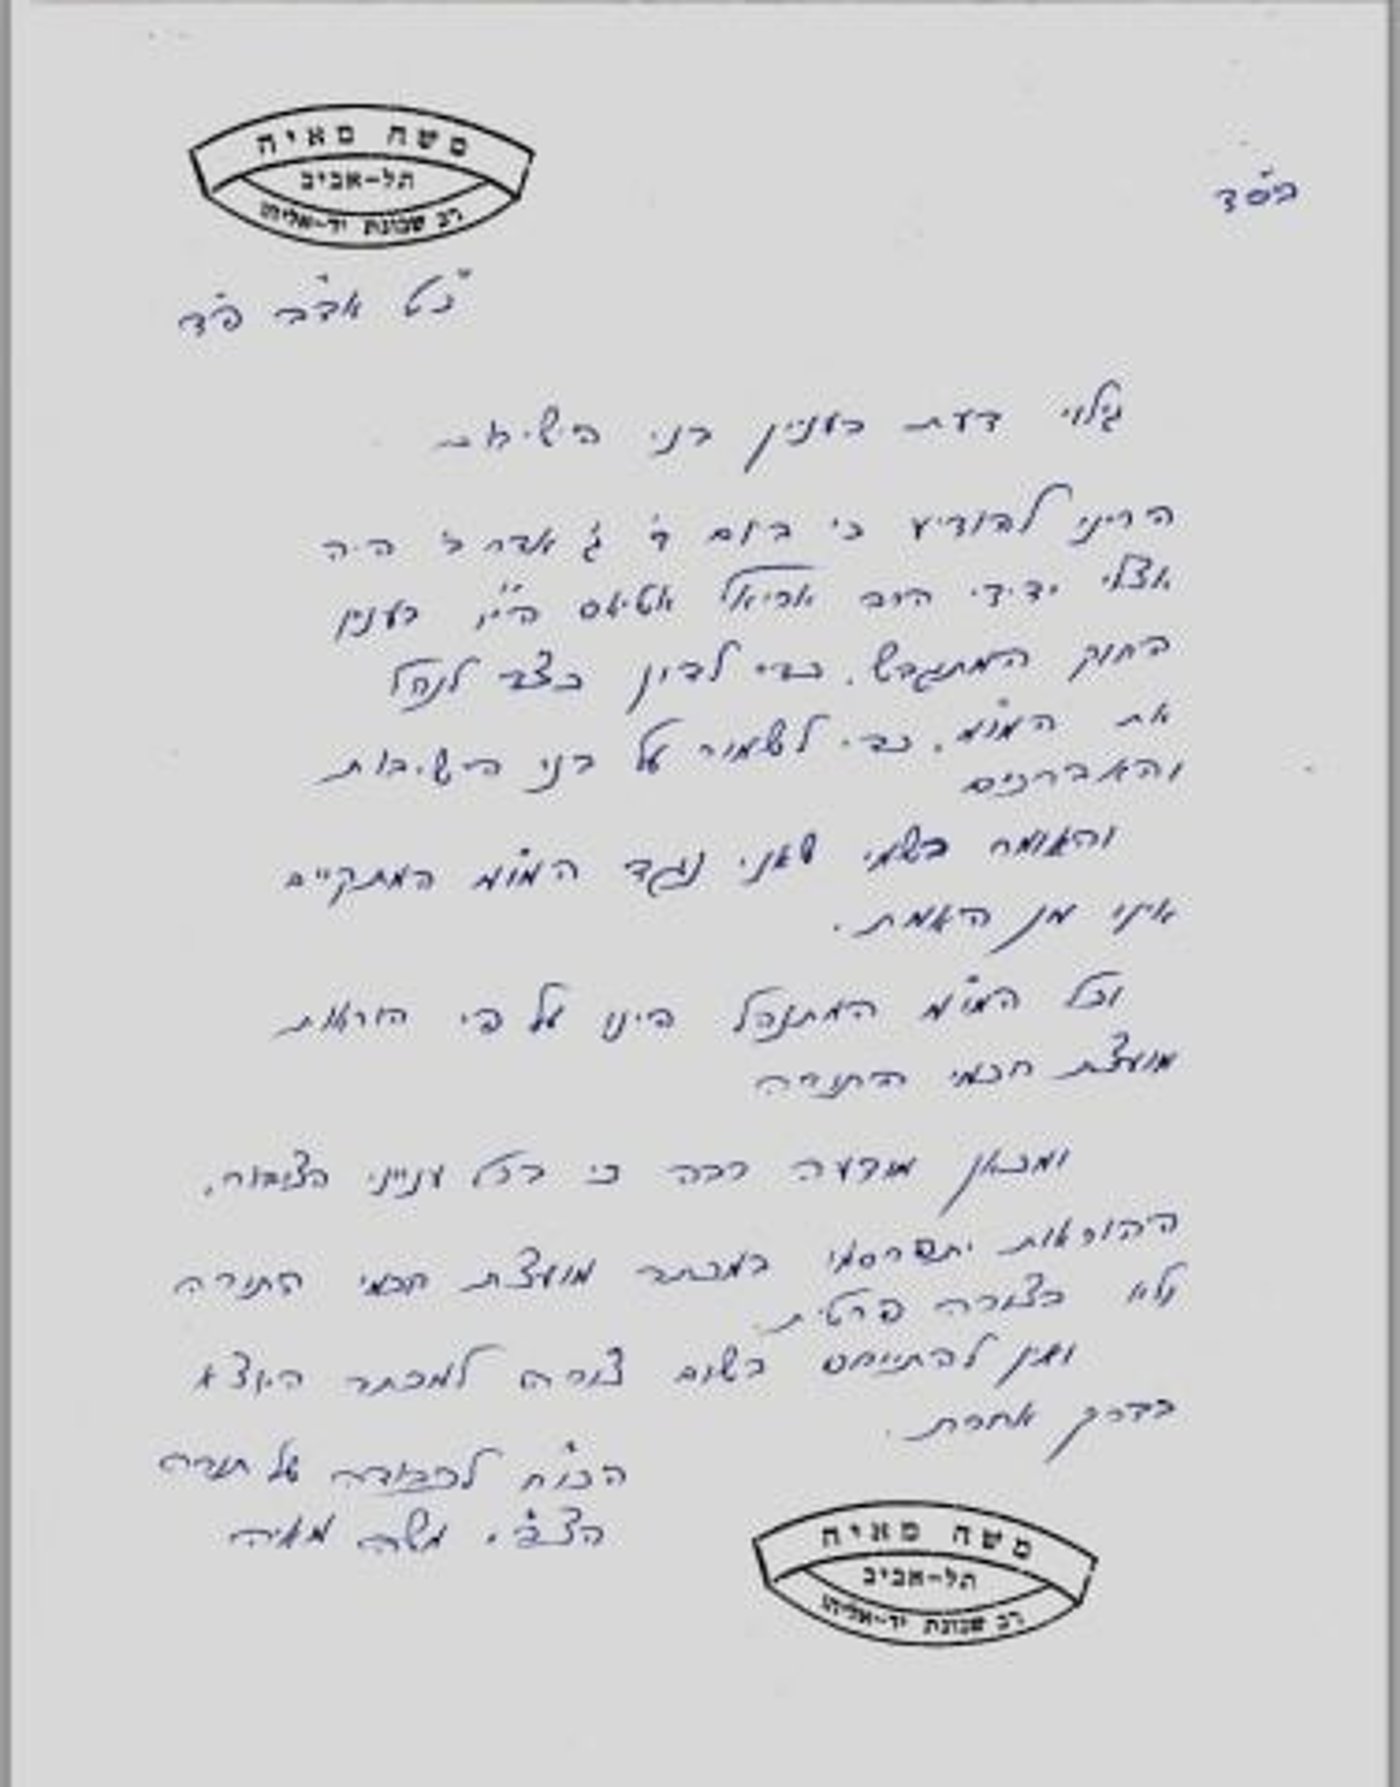 משה מאיה
תל-אביב
רב שכונת יד-אליהו
בס"ד
אד"ב פ"ד
גילוי דעת בענין בני הישיבות
הריני להודיע כי ביום ד' ג' אדר ב' היה
אצלי ידידי הרב אריאל אטיאס הי"ו בענין
החוק המתגבש, כדי לדון כצד לנהל
את המו"מ, כדי לשמור על בני הישיבות
והאברכים
והאומר בשמי שאני נגד המו"מ המתקיים
אינו מן האמת.
וכל המו"מ המתנהל הינו על פי הוראות
מועצת חכמי התורה
ומכאן מודעה רבה כי בכל ענייני הציבור,
ההוראות יתפרסמו במכתב מועצת חכמי התורה
ולא בצורה פרטית.
ואין להתייחס בשום צורה למכתב היוצא
בדרך אחרת.
הכו"ח לכבודה של תורה
הצב"י משה מאיה
משה מאיה
תל-אביב
רב שכונת יד-אליהו